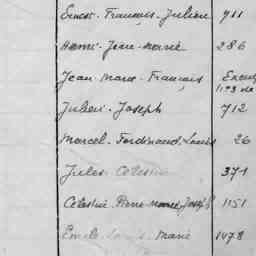 Ernest-François-Julien 911
Henri-Jean-Marie 286
Jean Marie-François
Julien-Joseph 712
Marcel-Ferdinand-Louis 26
Jules Célestin 371
Célestin-Pierre-Marie-Joseph 1151
Emile-Louis-Marie 1478